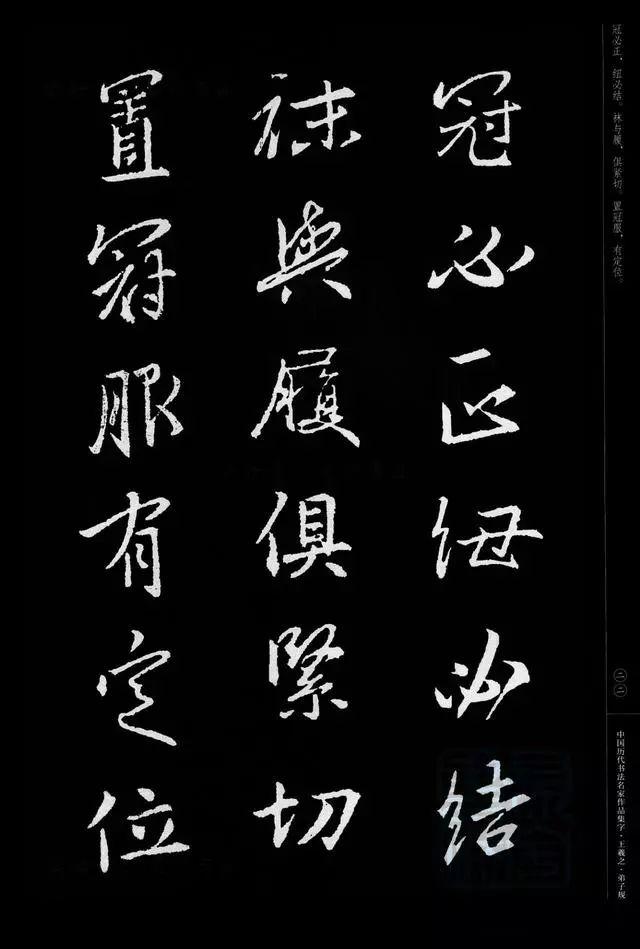 冠必正紐必结
袜與履俱緊切
置冠服有定位
冠必正，纽必结。袜与履，俱紧切。置冠服，有定位。
二二
中国历代书法名家作品集字·王羲之·弟子规